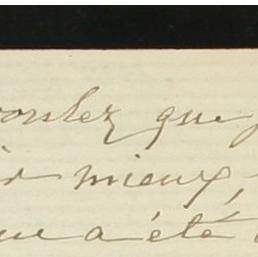 voulez que
mieux,
a été